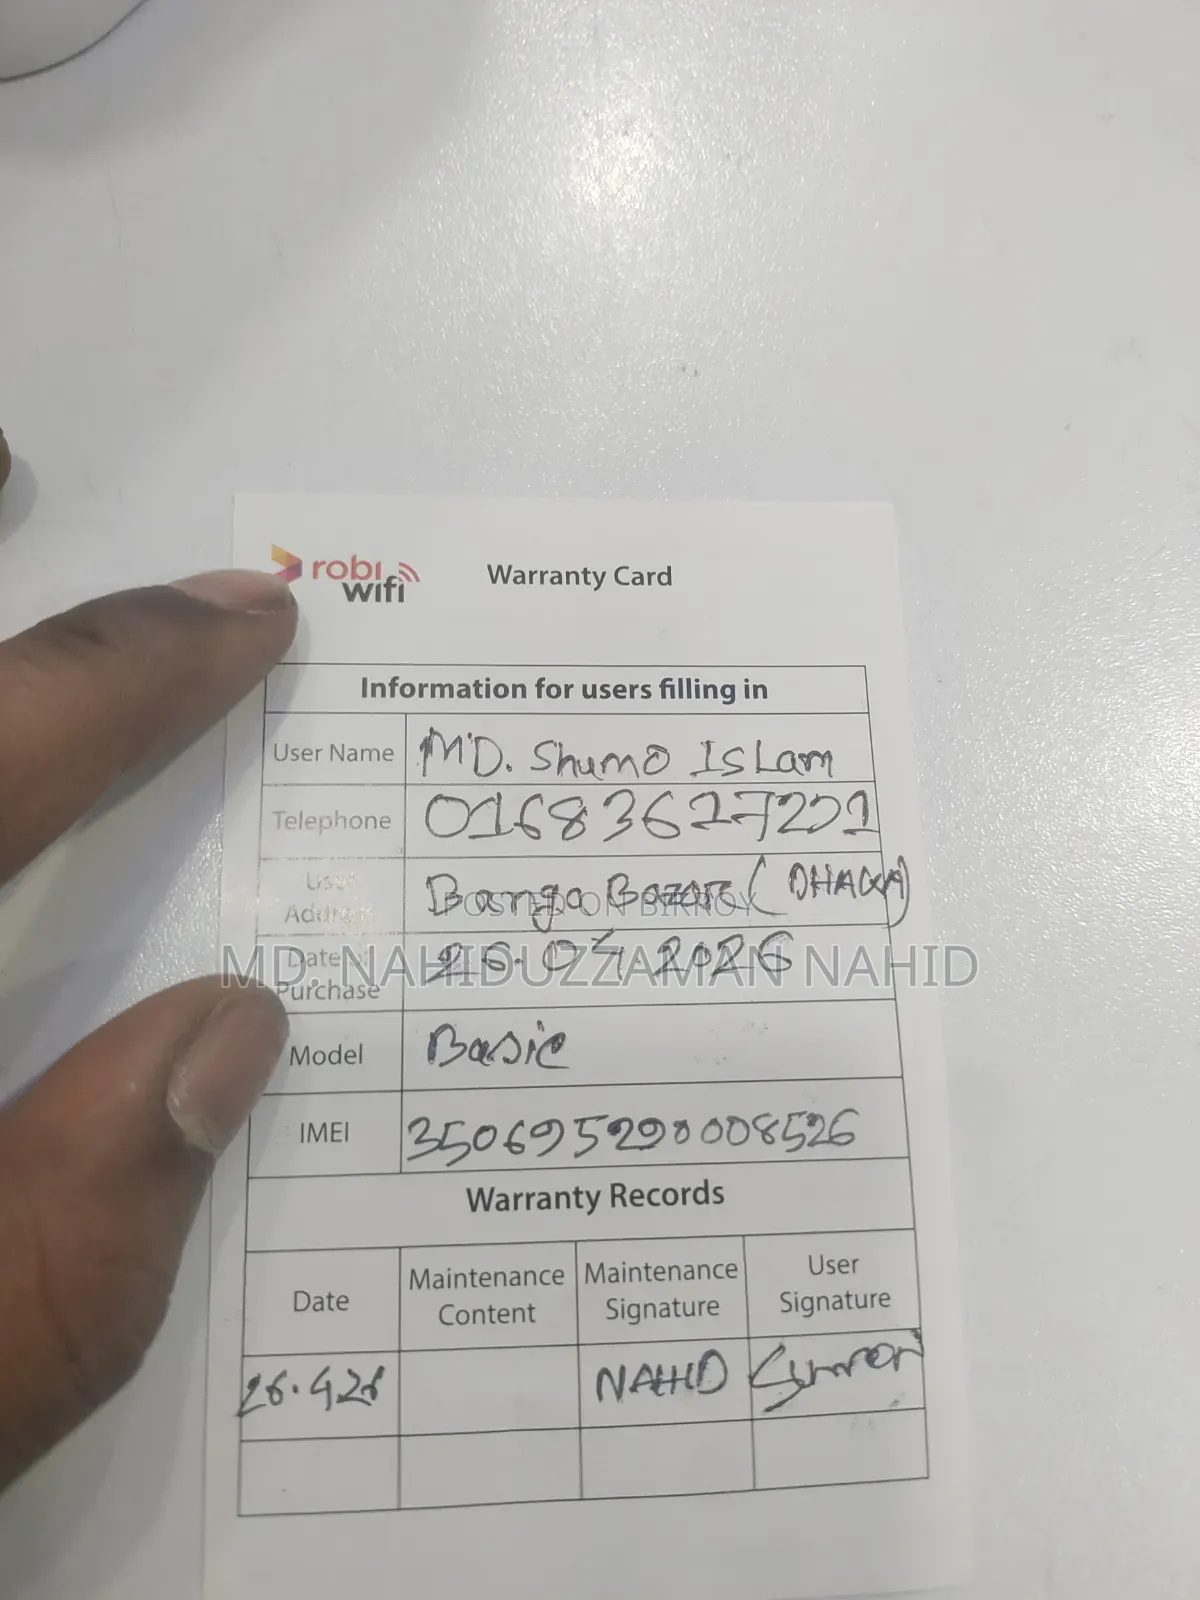 robi
wifi
Warranty Card
Information for users filling in
User Name MD. Shumo ISLam
Telephone
User
Address Banga Bazar (DHAKA)
POSTED ON BIKROY
MD. NAHIDUZZAMAN NAHID
Date of
Purchase 26.04 2026
Model Basic
IMEI 350695290008526
Warranty Records
Date Maintenance Content Maintenance Signature User Signature
26.426 NAHID